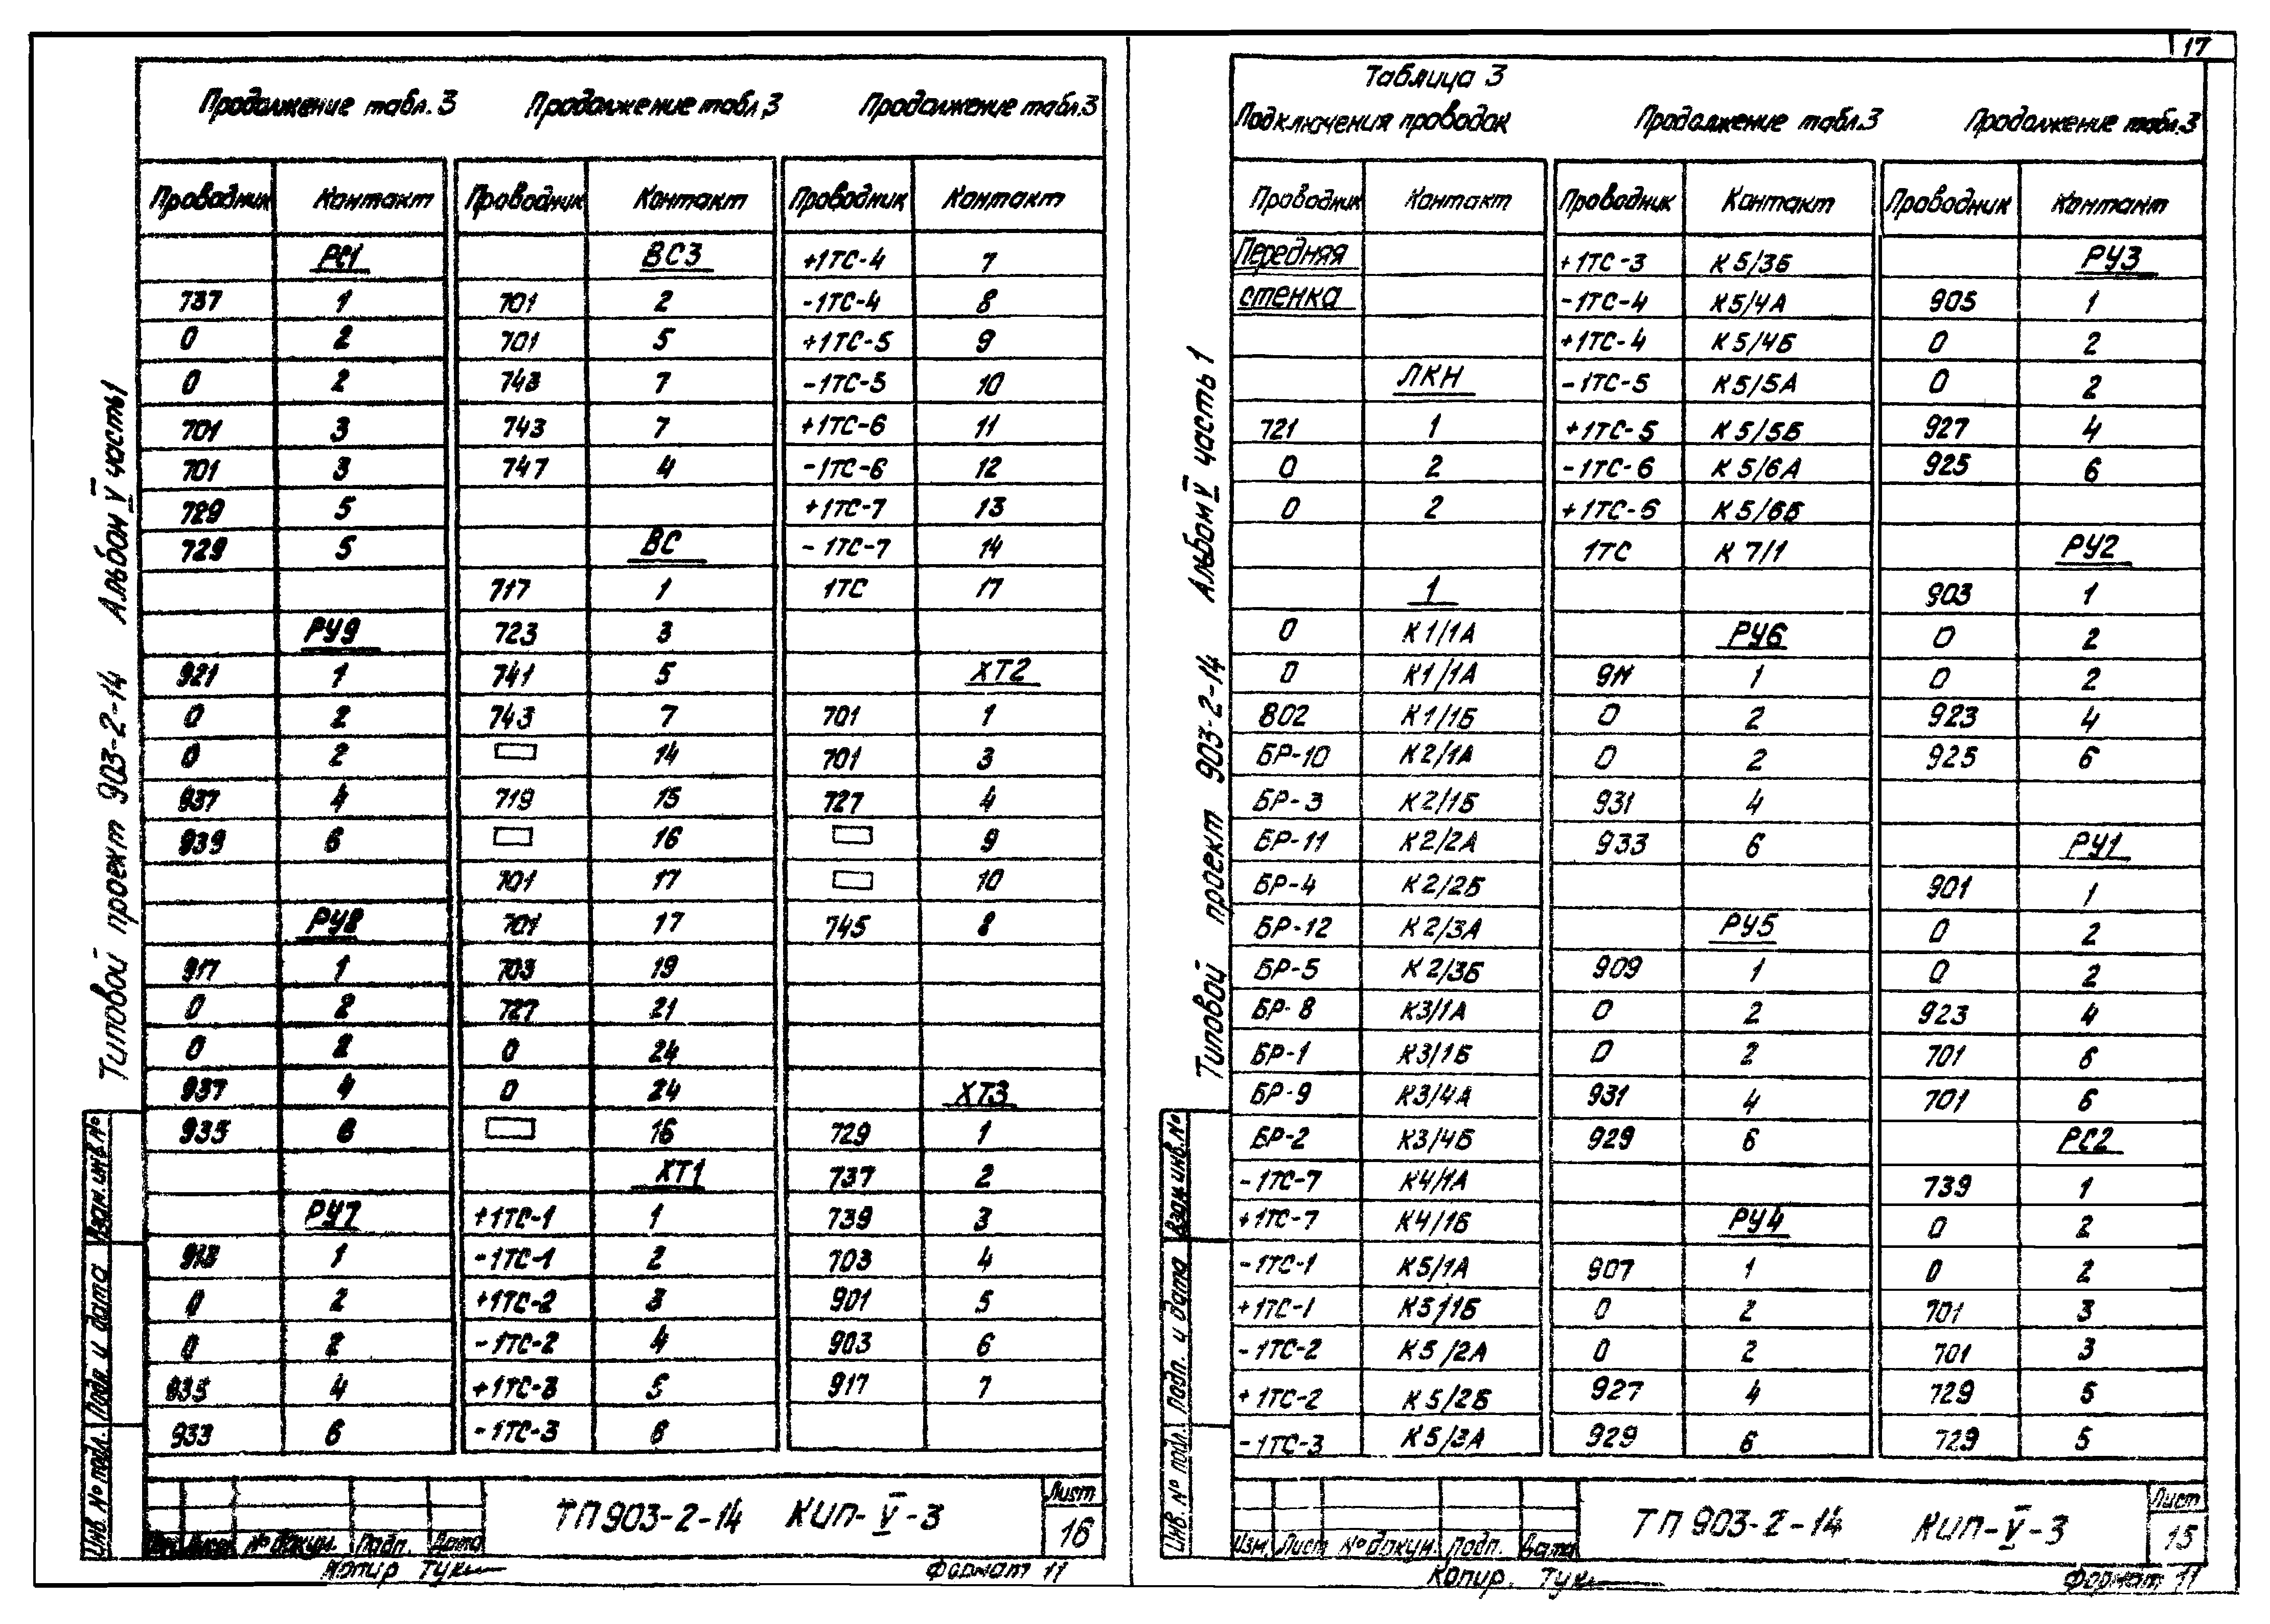 17
Продолжение табл. 3 Продолжение табл. 3 Продолжение табл. 3
Проводник Контакт Проводник Контакт Проводник Контакт
РС1 ВС3 +1ТС-4 7
737 1 701 2 -1ТС-4 8
0 2 701 5 +1ТС-5 9
0 2 743 7 -1ТС-5 10
701 3 743 7 +1ТС-6 11
701 3 747 4 -1ТС-6 12
729 5 +1ТС-7 13
729 5 ВС -1ТС-7 14
717 1 1ТС 17
РУ9 723 3
921 1 741 5 ХТ2
0 2 743 7 701 1
0 2 14 701 3
937 4 719 15 727 4
939 6 16 9
701 17 10
РУ8 701 17 745 8
917 1 703 19
0 2 727 21
0 2 0 24
937 4 0 24 ХТ3
935 6 16 729 1
ХТ1 737 2
РУ7 +1ТС-1 1 739 3
913 1 -1ТС-1 2 703 4
0 2 +1ТС-2 3 901 5
0 2 -1ТС-2 4 903 6
935 4 +1ТС-3 5 917 7
933 6 -1ТС-3 6
Типовой проект 903-2-14 Альбом V часть 1
Взам. инв. №
Подп. и дата
Инв. № подл.
Изм Лист № докум. Подп. Дата
ТП 903-2-14 КИП-V-3
Лист
16
Копир Формат 11
Таблица 3
Подключения проводок Продолжение табл. 3 Продолжение табл. 3
Проводник Контакт Проводник Контакт Проводник Контакт
Передняя +1ТС-3 К5/3Б РУ3
стенка -1ТС-4 К5/4А 905 1
+1ТС-4 К5/4Б 0 2
ЛКН -1ТС-5 К5/5А 0 2
721 1 +1ТС-5 К5/5Б 927 4
0 2 -1ТС-6 К5/6А 925 6
0 2 +1ТС-6 К5/6Б
1ТС К7/1 РУ2
1 903 1
0 К1/1А РУ6 0 2
0 К1/1А 911 1 0 2
802 К1/1Б 0 2 923 4
БР-10 К2/1А 0 2 925 6
БР-3 К2/1Б 931 4
БР-11 К2/2А 933 6 РУ1
БР-4 К2/2Б 901 1
БР-12 К2/3А РУ5 0 2
БР-5 К2/3Б 909 1 0 2
БР-8 К3/1А 0 2 923 4
БР-1 К3/1Б 0 2 701 6
БР-9 К3/4А 931 4 701 6
БР-2 К3/4Б 929 6 РС2
-1ТС-7 К4/1А 739 1
+1ТС-7 К4/1Б РУ4 0 2
-1ТС-1 К5/1А 907 1 0 2
+1ТС-1 К5/1Б 0 2 701 3
-1ТС-2 К5/2А 0 2 701 3
+1ТС-2 К5/2Б 927 4 729 5
-1ТС-3 К5/3А 929 6 729 5
Типовой проект 903-2-14 Альбом V часть 1
Взам. инв. №
Подп. и дата
Инв. № подл.
Изм. Лист № докум. Подп. Дата
ТП 903-2-14 КИП-V-3
Лист
15
Копир. Формат 11